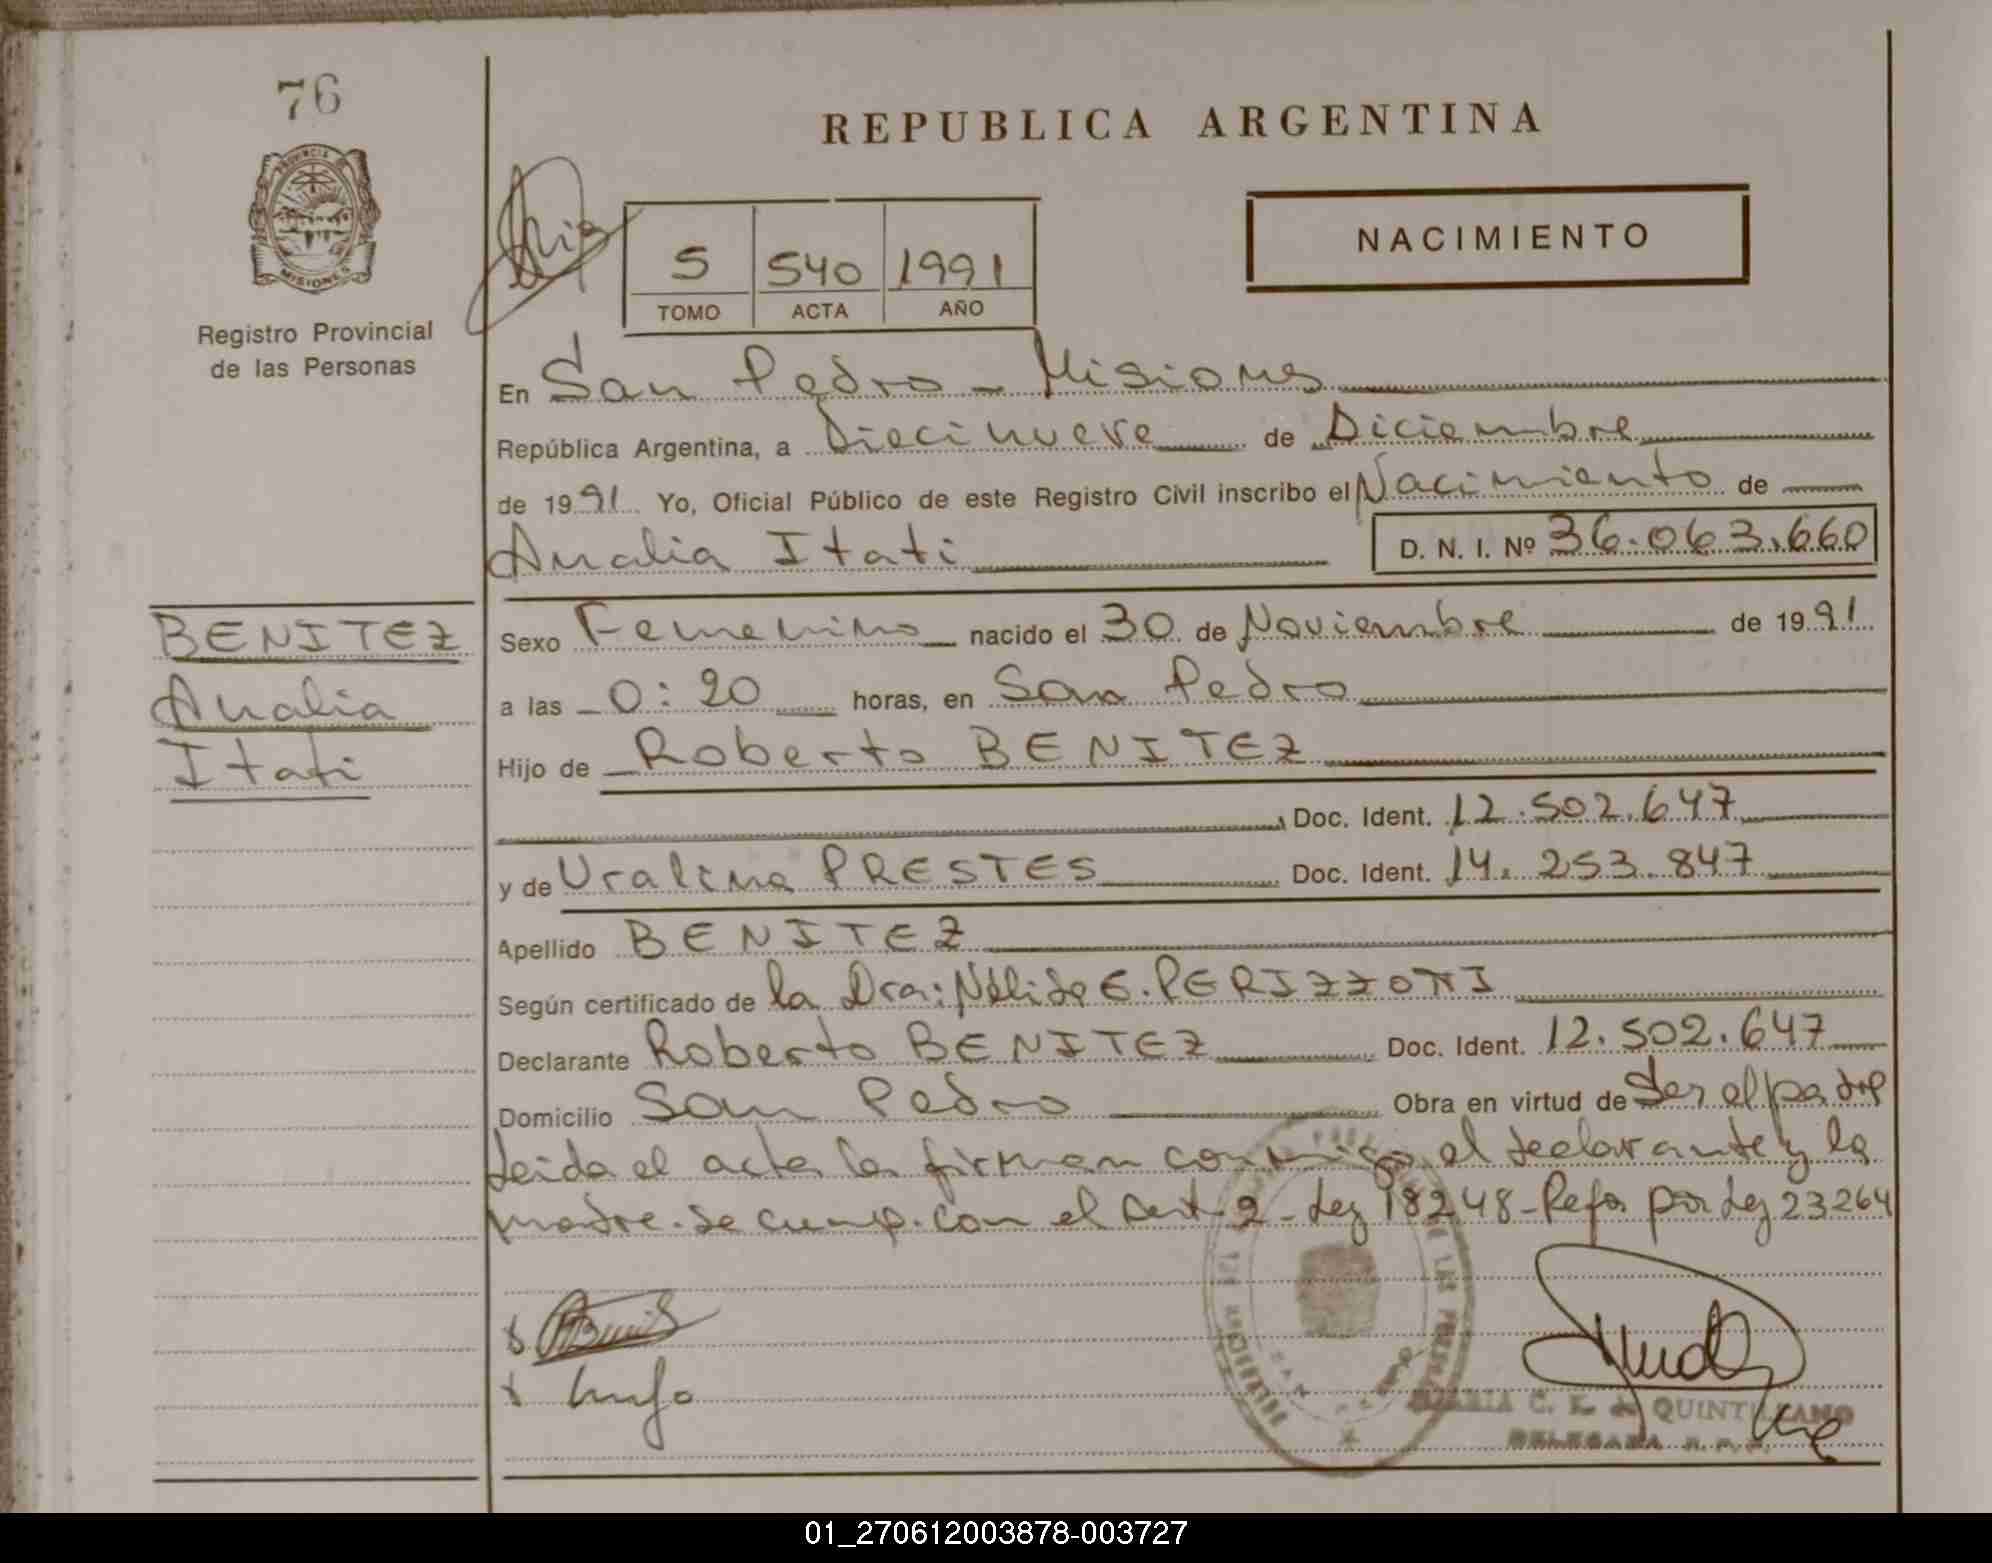 76
REPUBLICA ARGENTINA
PROVINCIA DE
MISIONES
Registro Provincial
de las Personas
5 540 1991
TOMO ACTA AÑO
NACIMIENTO
En San Pedro - Misiones
República Argentina, a Diecinueve de Diciembre
de 1991 Yo, Oficial Público de este Registro Civil inscribo el Nacimiento de
Analia Itati D. N. I. Nº 36.063.660
BENITEZ
Analia
Itati
Sexo Femenino nacido el 30 de Noviembre de 1991
a las 0:20 horas, en San Pedro
Hijo de Roberto BENITEZ
, Doc. Ident. 12.502.647
y de Uralina PRESTES Doc. Ident. 14.253.847
Apellido BENITEZ
Según certificado de la Dra: Nélida E. PERIZZONI
Declarante Roberto BENITEZ Doc. Ident. 12.502.647
Domicilio San Pedro Obra en virtud de Ser el padre
Leida el acta la firman conmigo el declarante y la
madre. Se cump. con el Art 2 - Ley 18248 - Refor por Ley 23264
MARIA C. K. de QUINTILLANO
DELEGADA R. P. P.
01_270612003878-003727